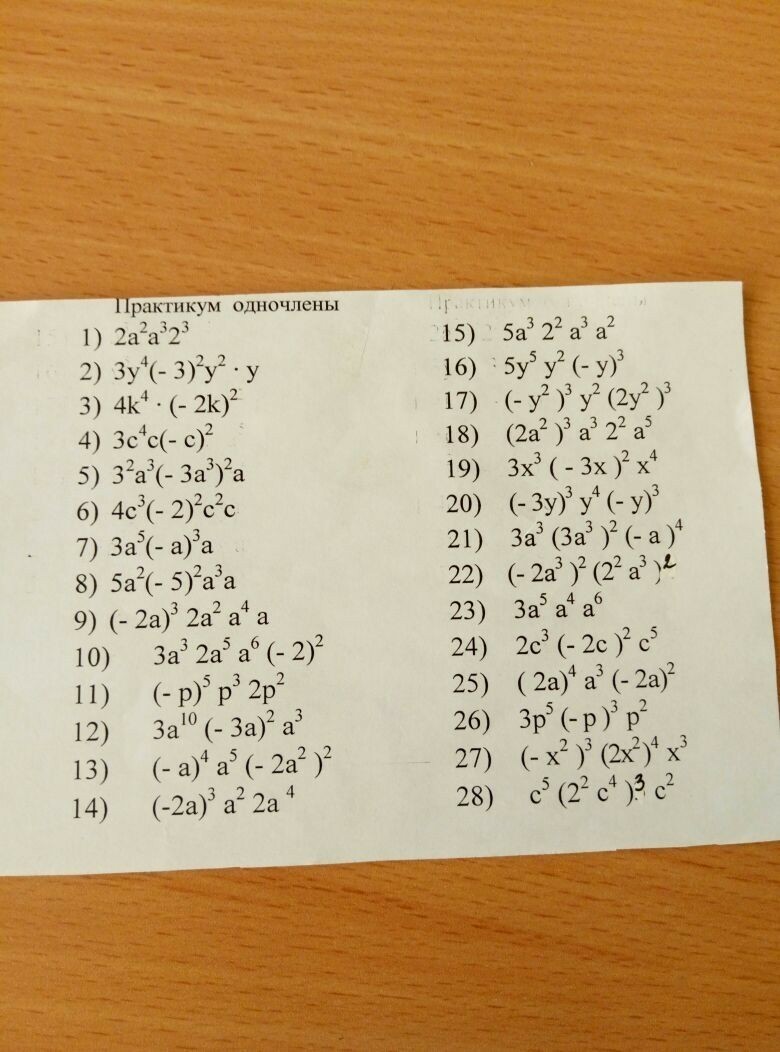 Практикум одночлены
1) 2a²a³2³
2) 3y⁴(- 3)²y² · y
3) 4k⁴ · (- 2k)²
4) 3c⁴c(- c)²
5) 3²a³(- 3a³)²a
6) 4c³(- 2)²c²c
7) 3a⁵(- a)³a
8) 5a²(- 5)²a³a
9) (- 2a)³ 2a² a⁴ a
10) 3a³ 2a⁵ a⁶ (- 2)²
11) (- p)⁵ p³ 2p²
12) 3a¹⁰ (- 3a)² a³
13) (- a)⁴ a⁵ (- 2a² )²
14) (-2a)³ a² 2a ⁴
15) 5a³ 2² a³ a²
16) 5y⁵ y² (- y)³
17) (- y² )³ y² (2y² )³
18) (2a² )³ a³ 2² a⁵
19) 3x³ ( - 3x )² x⁴
20) (- 3y)³ y⁴ (- y)³
21) 3a³ (3a³ )² (- a )⁴
22) (- 2a³ )² (2² a³ )²
23) 3a⁵ a⁴ a⁶
24) 2c³ (- 2c )² c⁵
25) ( 2a)⁴ a³ (- 2a)²
26) 3p⁵ (- p )³ p²
27) (- x² )³ (2x²)⁴ x³
28) c⁵ (2² c⁴ )³ c²